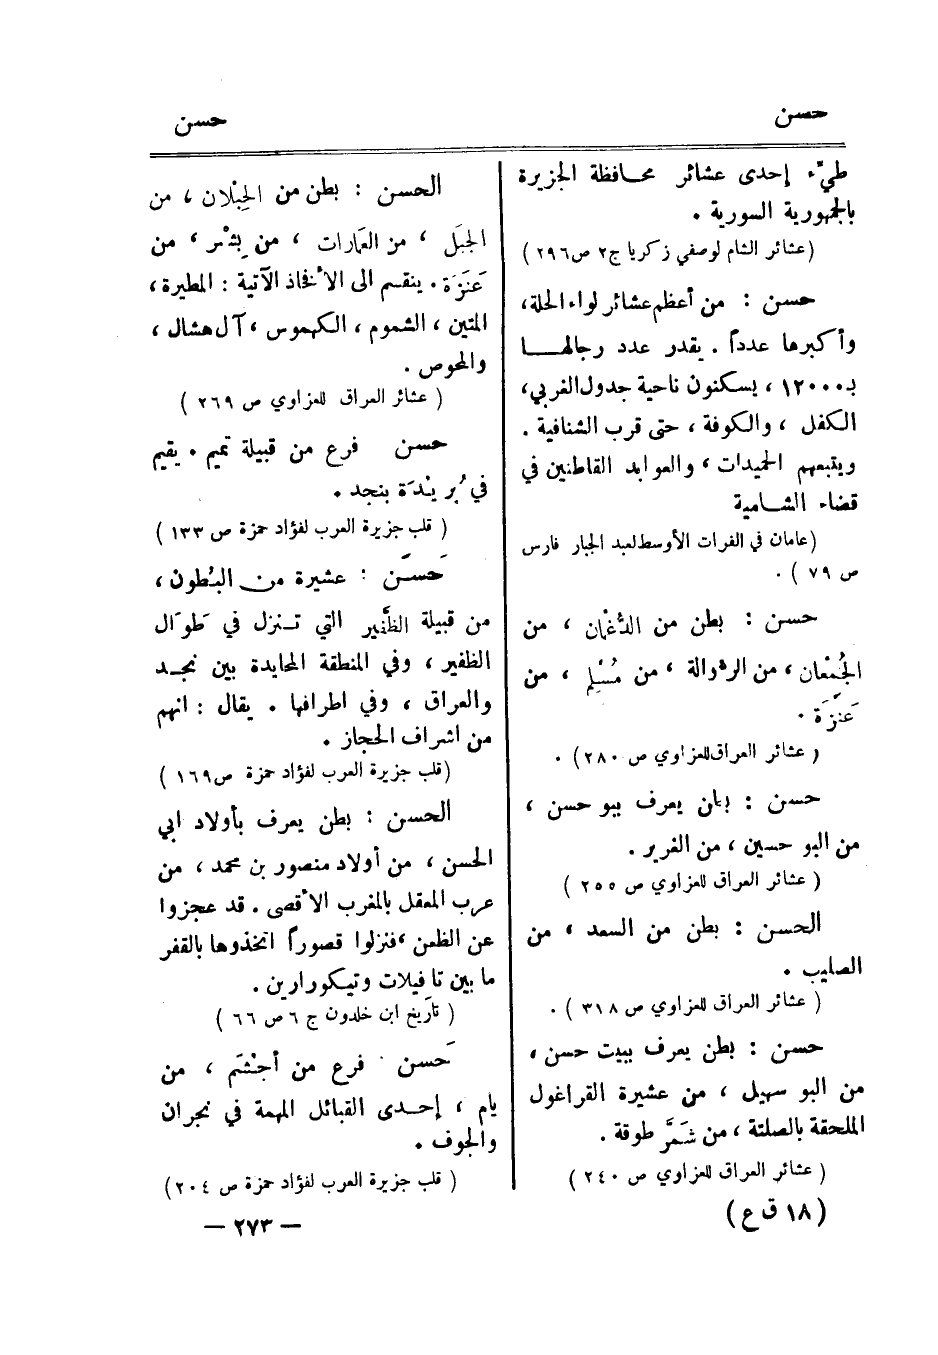 حسن
حسن
طيّء إحدى عشائر محافظة الجزيرة
بالجمهورية السورية .
(عشائر الشام لوصفي زكريا ج٢ ص٢٩٦)
حسن : من أعظم عشائر لواء الحلة،
وأكبرها عدداً . يقدر عدد رجالها
بـ ١٢٠٠٠ ، يسكنون ناحية جدول الغربي،
الكفل ، والكوفة ، حتى قرب الشنافية .
ويتبعهم الحميدات ، والعوابد القاطنين في
قضاء الشامية
(عامان في الفرات الأوسط لعبد الجبار فارس
ص ٧٩ ) .
حسن : بطن من الدُّغمان ، من
الجُمْعان ، من الرولة ، من مُسْلِم ، من
عَنَزَة .
( عشائر العراق للعزاوي ص ٢٨٠) .
حسن : بطن يعرف ببو حسن ،
من البو حسين ، من الغرير .
( عشائر العراق للعزاوي ص ٢٥٥ )
الحسن : بطن من السعد ، من
الصليب .
( عشائر العراق للعزاوي ص ٣١٨ ) .
حسن : بطن يعرف ببيت حسن ،
من البو سهيل ، من عشيرة القراغول
الملحقة بالصلتة ، من شمَّر طوقة .
( عشائر العراق للعزاوي ص ٢٤٠ )
(١٨ ق ع)
الحسن : بطن من الحِبْلان ، من
الجبَل ، من العمارات ، من بِشْر ، من
عَنَزَة . ينقسم الى الأفخاذ الآتية : المطيرة ،
المتين ، الشموم ، الكهموس ، آل هشال ،
والمحوص .
( عشائر العراق للعزاوي ص ٢٦٩ )
حسن فرع من قبيلة تميم . يقيم
في بُريدَة بنجد .
( قلب جزيرة العرب لفؤاد حمزة ص ١٣٣ )
حَسَن : عشيرة من البُطون ،
من قبيلة الظَّفير التي تنزل في طوَال
الظفير ، وفي المنطقة المحايدة بين نجد
والعراق ، وفي اطرافها . يقال : انهم
من اشراف الحجاز .
(قلب جزيرة العرب لفؤاد حمزة ص١٦٩ )
الحسن : بطن يعرف بأولاد ابي
الحسن ، من أولاد منصور بن محمد ، من
عرب المعقل بالمغرب الأقصى . قد عجزوا
عن الظعن ، فنزلوا قصوراً اتخذوها بالقفر
ما بين تافيلات وتيكورارين .
( تاريخ ابن خلدون ج ٦ ص ٦٦ )
حَسن فرع من أجْشَم ، من
يام ، إحدى القبائل المهمة في نجران
والجوف .
( قلب جزيرة العرب لفؤاد حمزة ص ٢٠٤)
— ٢٧٣ —